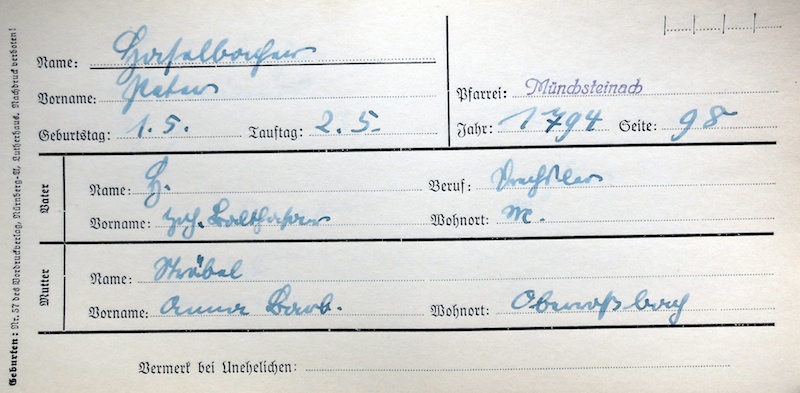 Name: Haselbacher
Vorname: Peter
Pfarrei: Münchsteinach
Geburtstag: 1. 5. Tauftag: 2. 5. Jahr: 1794 Seite: 98
Vater
Name: H. Beruf: Drechsler
Vorname: Joh. Balthasar Wohnort: M.
Mutter
Name: Ströbel
Vorname: Anna Barb. Wohnort: Oberroßbach
Vermerk bei Unehelichen:
Geburten: Nr. 57 des Vordruckverlag, Nürnberg-A, Lutherhaus. Nachdruck verboten!